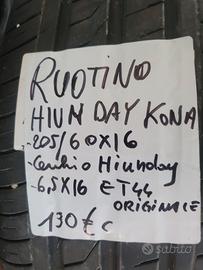 RUOTINO
HIUNDAY KONA
-205/60X16
-Cerchio Hiunday
-6,5X16 ET44
ORIGINALE
130€ c
subito